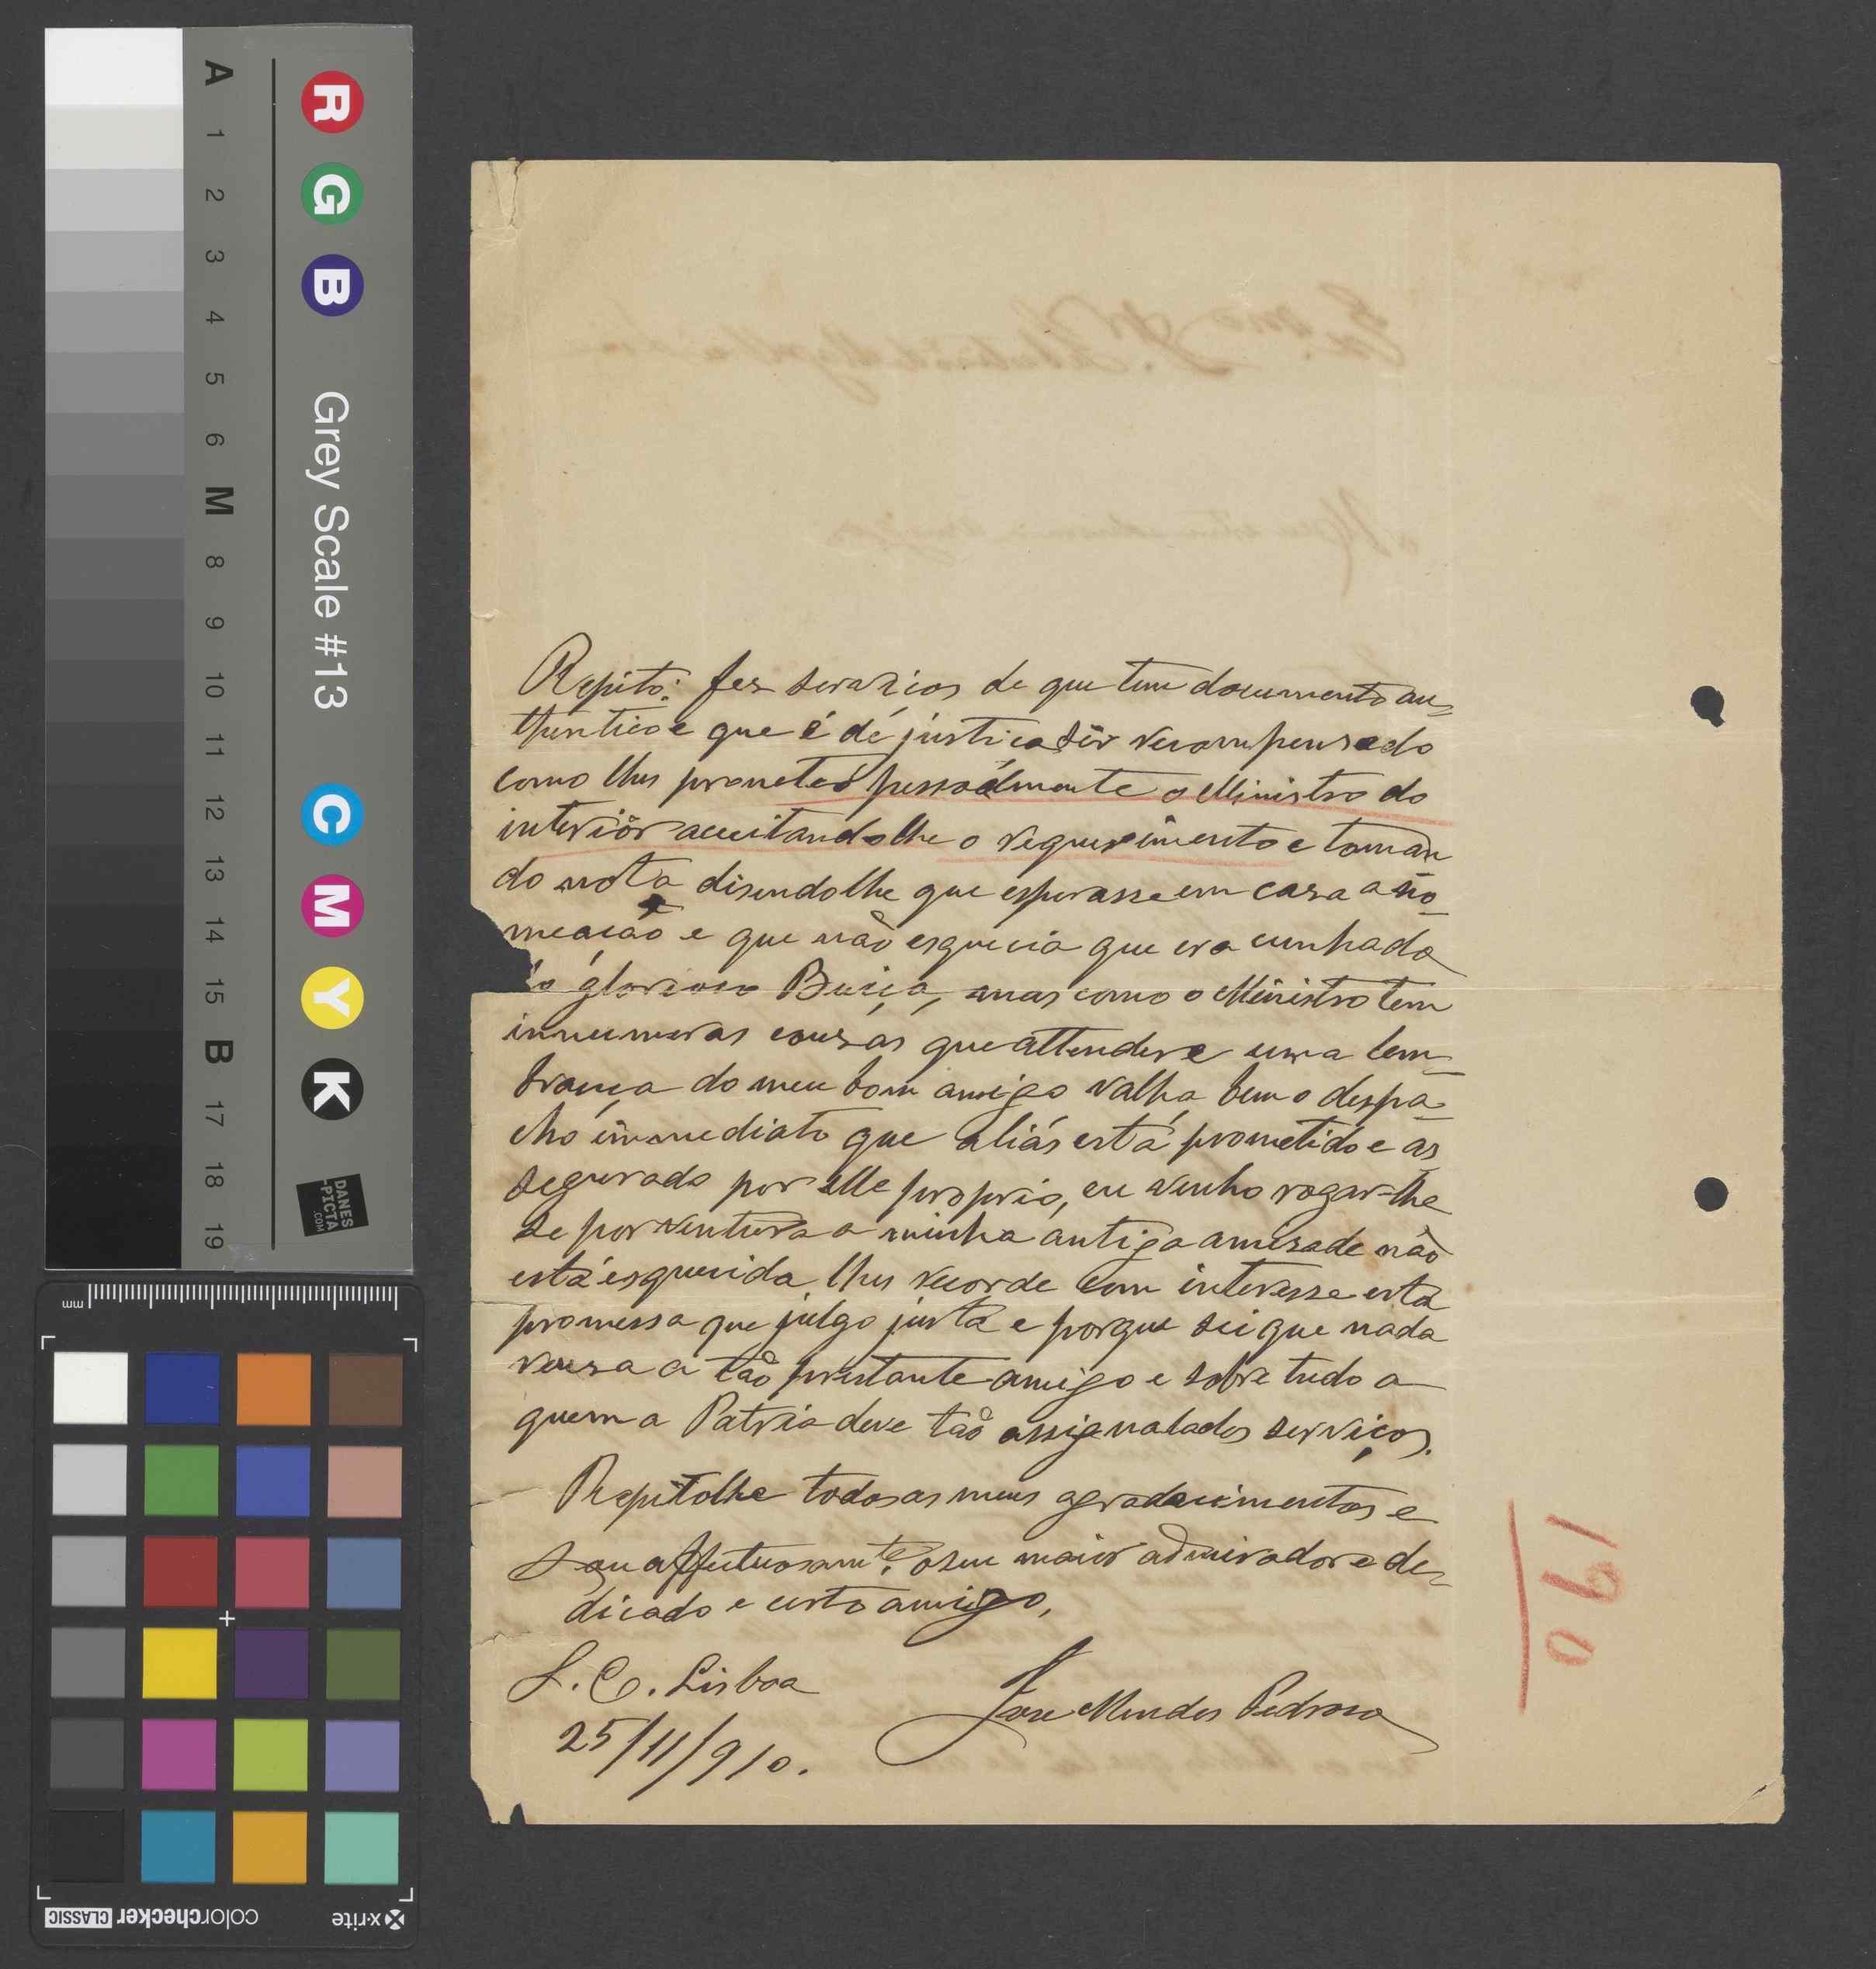 A
1
2
3
4
5
6
M
8
9
10
11
12
13
14
15
B
17
18
19
R
G
B
Grey Scale #13
C
M
Y
K
DANES
-PICTA
.COM
mm
x-rite
colorchecker CLASSIC
Repito: fez serviços de que tem documento au=
thentico e que é de justiça sêr recompensado
como lhes prometeo pessoalmente o Ministro do
interiôr acceitandolhe o requerimento e toman
do nota disendolhe que esperasse em casa a no-
meacão e que não esquecia que era cunhado
do glorioso Buiça, mas como o Ministro tem
innumeras cousas que attender e uma lem-
brança do meu bom amigo valha bem o despa-
cho immediato que aliás está prometido e as
segurado por elle proprio, eu venho rogar-lhe
se por ventura a minha antiga amisade não
está esquecida lhes recorde com interesse esta
promessa que julgo justa e porque sei que nada
recusa a tão prestante amigo e sobre tudo a
quem a Patria deve tão assignalados serviços.
Repitolhe todos as meus agradecimentos e
Sou affectuosamte. o seu maior admirador e de=
dicado e certo amigo,
S. C. Lisboa
José Mendes Pedroso
25/11/910.
190